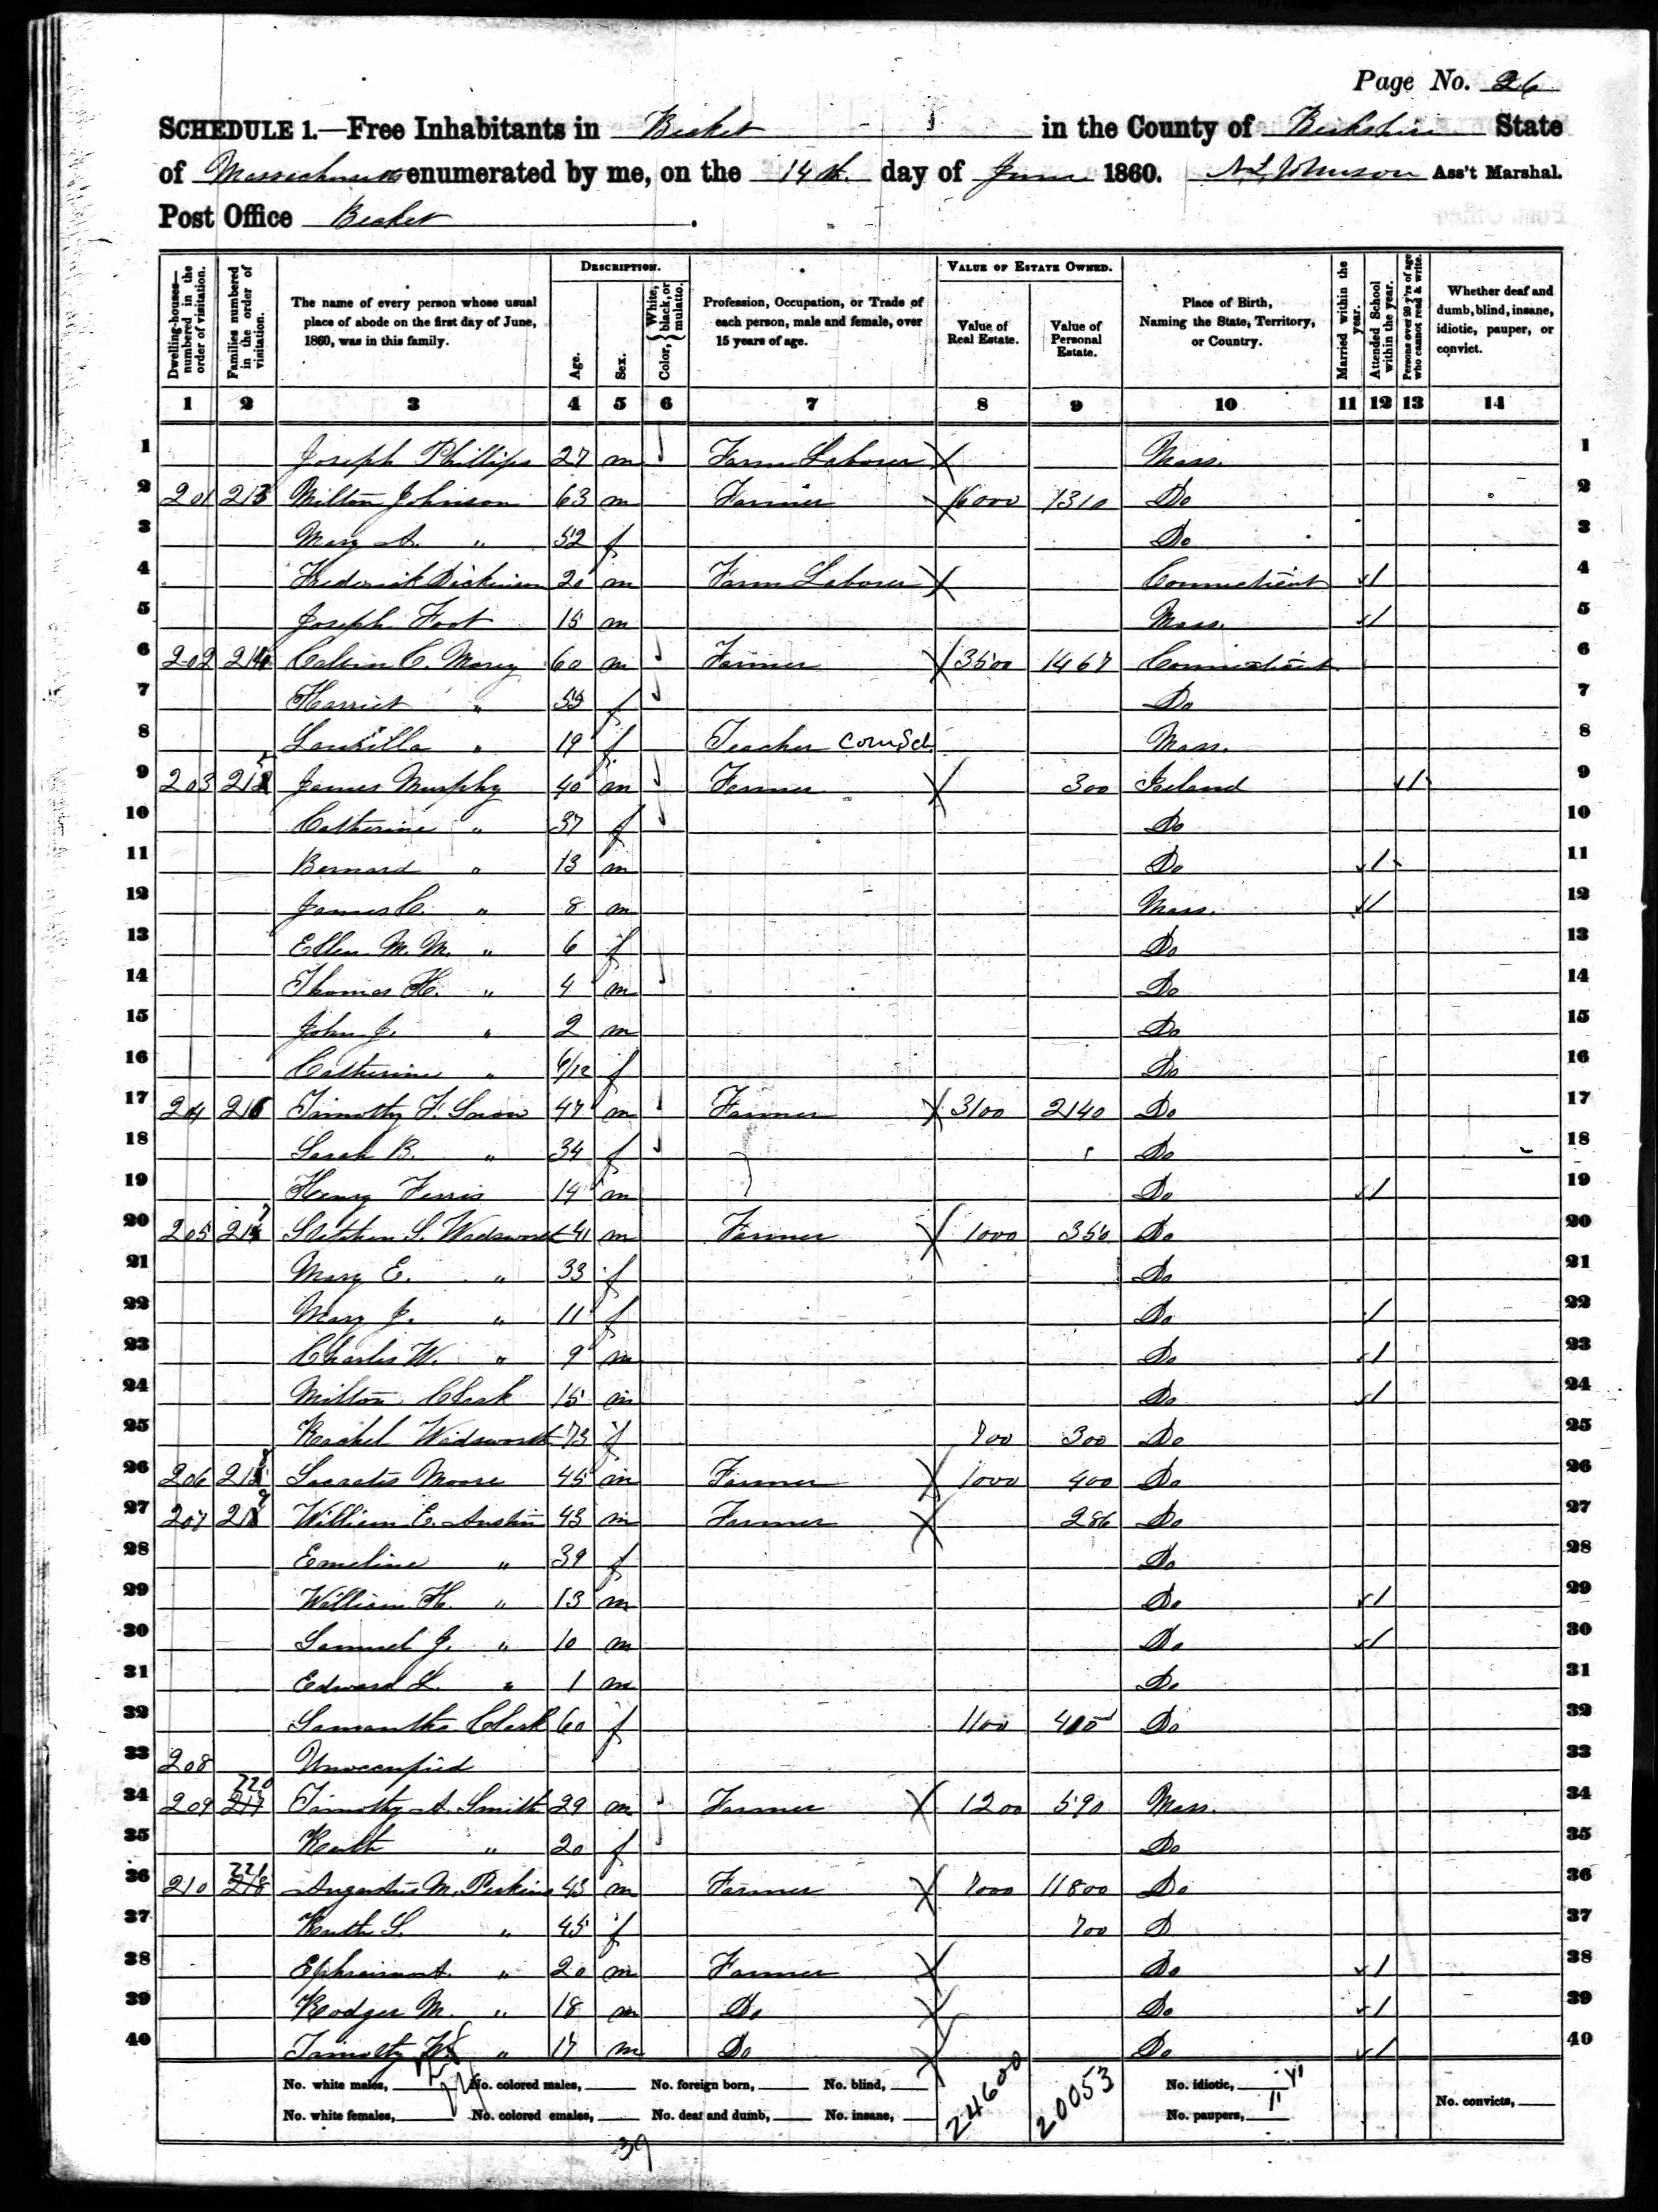 Page No. 26
SCHEDULE 1.—Free Inhabitants in Becket in the County of Berkshire State
of Massachusetts enumerated by me, on the 14th. day of June 1860. A. L. Johnson Ass't Marshal.
Post Office Becket.
Dwelling-houses—numbered in the order of visitation. Families numbered in the order of visitation. The name of every person whose usual place of abode on the first day of June, 1860, was in this family. DESCRIPTION. Age. Sex. Color, { White, black, or mulatto. Profession, Occupation, or Trade of each person, male and female, over 15 years of age. VALUE OF ESTATE OWNED. Value of Real Estate. Value of Personal Estate. Place of Birth, Naming the State, Territory, or Country. Married within the year. Attended School within the year. Persons over 20 y'rs of age who cannot read & write. Whether deaf and dumb, blind, insane, idiotic, pauper, or convict.
1 2 3 4 5 6 7 8 9 10 11 12 13 14
1 Joseph Phillips 27 m Farm Laborer X Mass. 1
2 201 213 Milton Johnson 63 m Farmer X 6000 1310 Do 2
3 Mary A. " 52 f Do 3
4 Frederick Dickinson 20 m Farm Laborer X Connecticut / 4
5 Joseph Foot 15 m Mass. / 5
6 202 214 Calvin C. Morey 60 m Farmer X 3500 1467 Connecticut 6
7 Harriet " 55 f Do 7
8 " 19 f Teacher Com Sch Mass. 8
9 203 215 James Murphy 40 m Farmer X 300 Ireland / 9
10 Catherine " 37 f Do 10
11 Bernard " 13 m Do / 11
12 James C. " 8 m Mass. / 12
13 Ellen M. M. " 6 f Do 13
14 Thomas H. " 4 m Do 14
15 John J. " 2 m Do 15
16 Catherine " 6/12 f Do 16
17 204 216 Timothy F. Snow 47 m Farmer X 3100 2140 Do 17
18 Sarah B. " 34 f Do 18
19 Henry Ferris 14 m Do / 19
20 205 217 Stephen S. Wadsworth 41 m Farmer X 1000 350 Do 20
21 Mary E. " 33 f Do 21
22 Mary J. " 11 f Do / 22
23 Charles W. " 9 m Do / 23
24 Milton Clark 15 m Do / 24
25 Rachel Wadsworth 73 f 700 300 Do 25
26 206 218 Socrates Moore 45 m Farmer X 1000 400 Do 26
27 207 219 William E. Austin 43 m Farmer X 286 Do 27
28 Emeline " 39 f Do 28
29 William H. " 13 m Do / 29
30 Samuel J. " 10 m Do / 30
31 Edward L. " 1 m Do 31
32 Samantha Clark 60 f 1100 410 Do 32
33 208 Unoccupied 33
34 209 220 Timothy A. Smith 29 m Farmer X 1200 590 Mass. 34
35 Ruth " 20 f Do 35
36 210 221 Augustus M. Perkins 43 m Farmer X 7000 11800 Do 36
37 Ruth S. " 45 f 700 D 37
38 Ephraim A. " 20 m Farmer X Do / 38
39 Rodger M. " 18 m Do X Do / 39
40 Timothy " 17 m Do X Do / 40
No. white males, No. colored males, No. foreign born, No. blind, 24600 20053 No. idiotic,
No. white females, No. colored emales, No. deaf and dumb, No. insane, No. paupers, No. convicts,
39